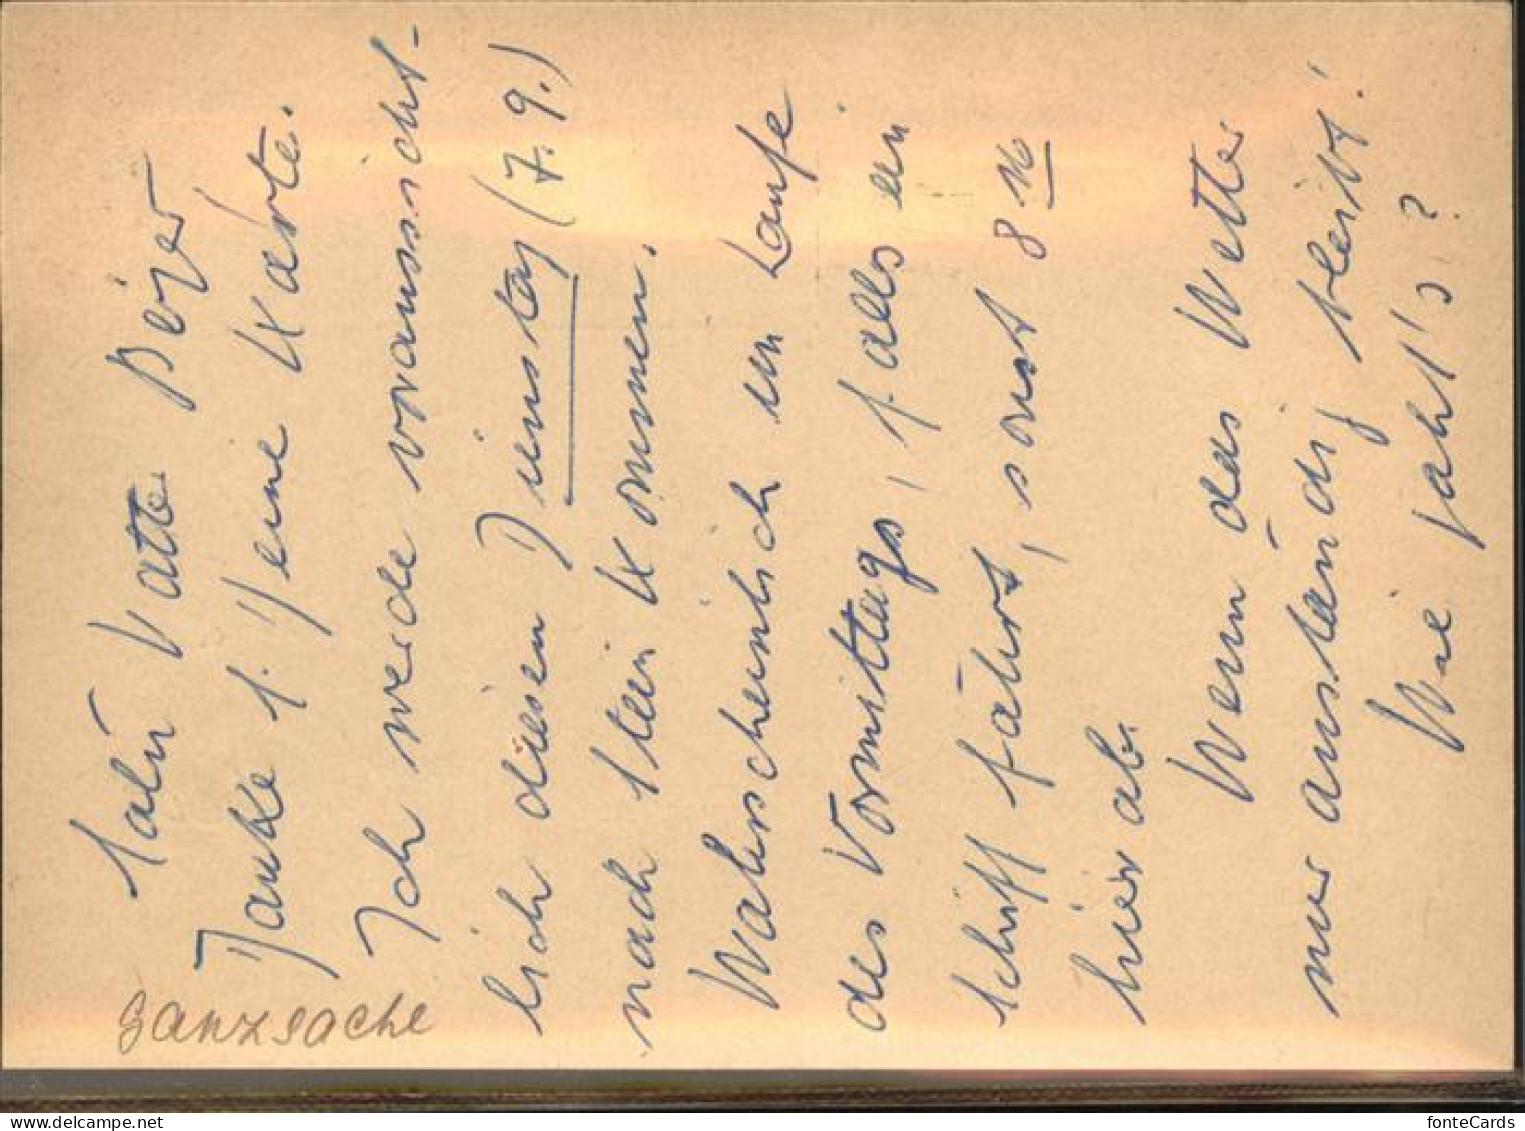 Salü Vatter
Danke f. Deine Karte.
Ich werde voraussicht-
lich diesen Dienstag (7.9.)
nach Stein kommen.
Wahrscheinlich im Laufe
des Vormittags, falls ein
Schiff fährt, sonst 8 16
hier ab.
Wenn das Wetter
nur anständig bleibt!
Wie gaht's?
Ganzsache
delcampe.net
fonteCards